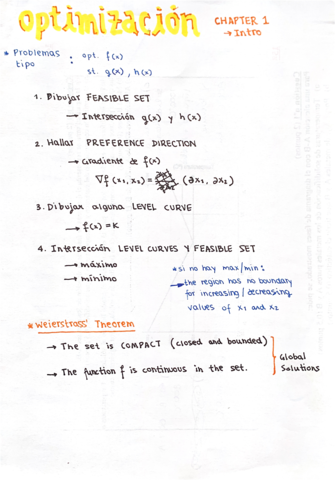 optimización
CHAPTER 1
→ Intro
* Problemas tipo :
opt. f(x)
st. g(x), h(x)
1. Dibujar FEASIBLE SET
→ Intersección g(x) y h(x)
2. Hallar PREFERENCE DIRECTION
→ Gradiente de f(x)
∇f (x₁, x₂) = (∂x₁, ∂x₂)
3. Dibujar alguna LEVEL CURVE
→ f(x) = K
4. Intersección LEVEL CURVES y FEASIBLE SET
→ máximo
→ mínimo
* si no hay max/min:
→ the region has no boundary
for increasing/decreasing
values of x₁ and x₂
* Weierstrass' Theorem
→ The set is COMPACT (closed and bounded)
→ The function f is continuous in the set.
Global
Solutions